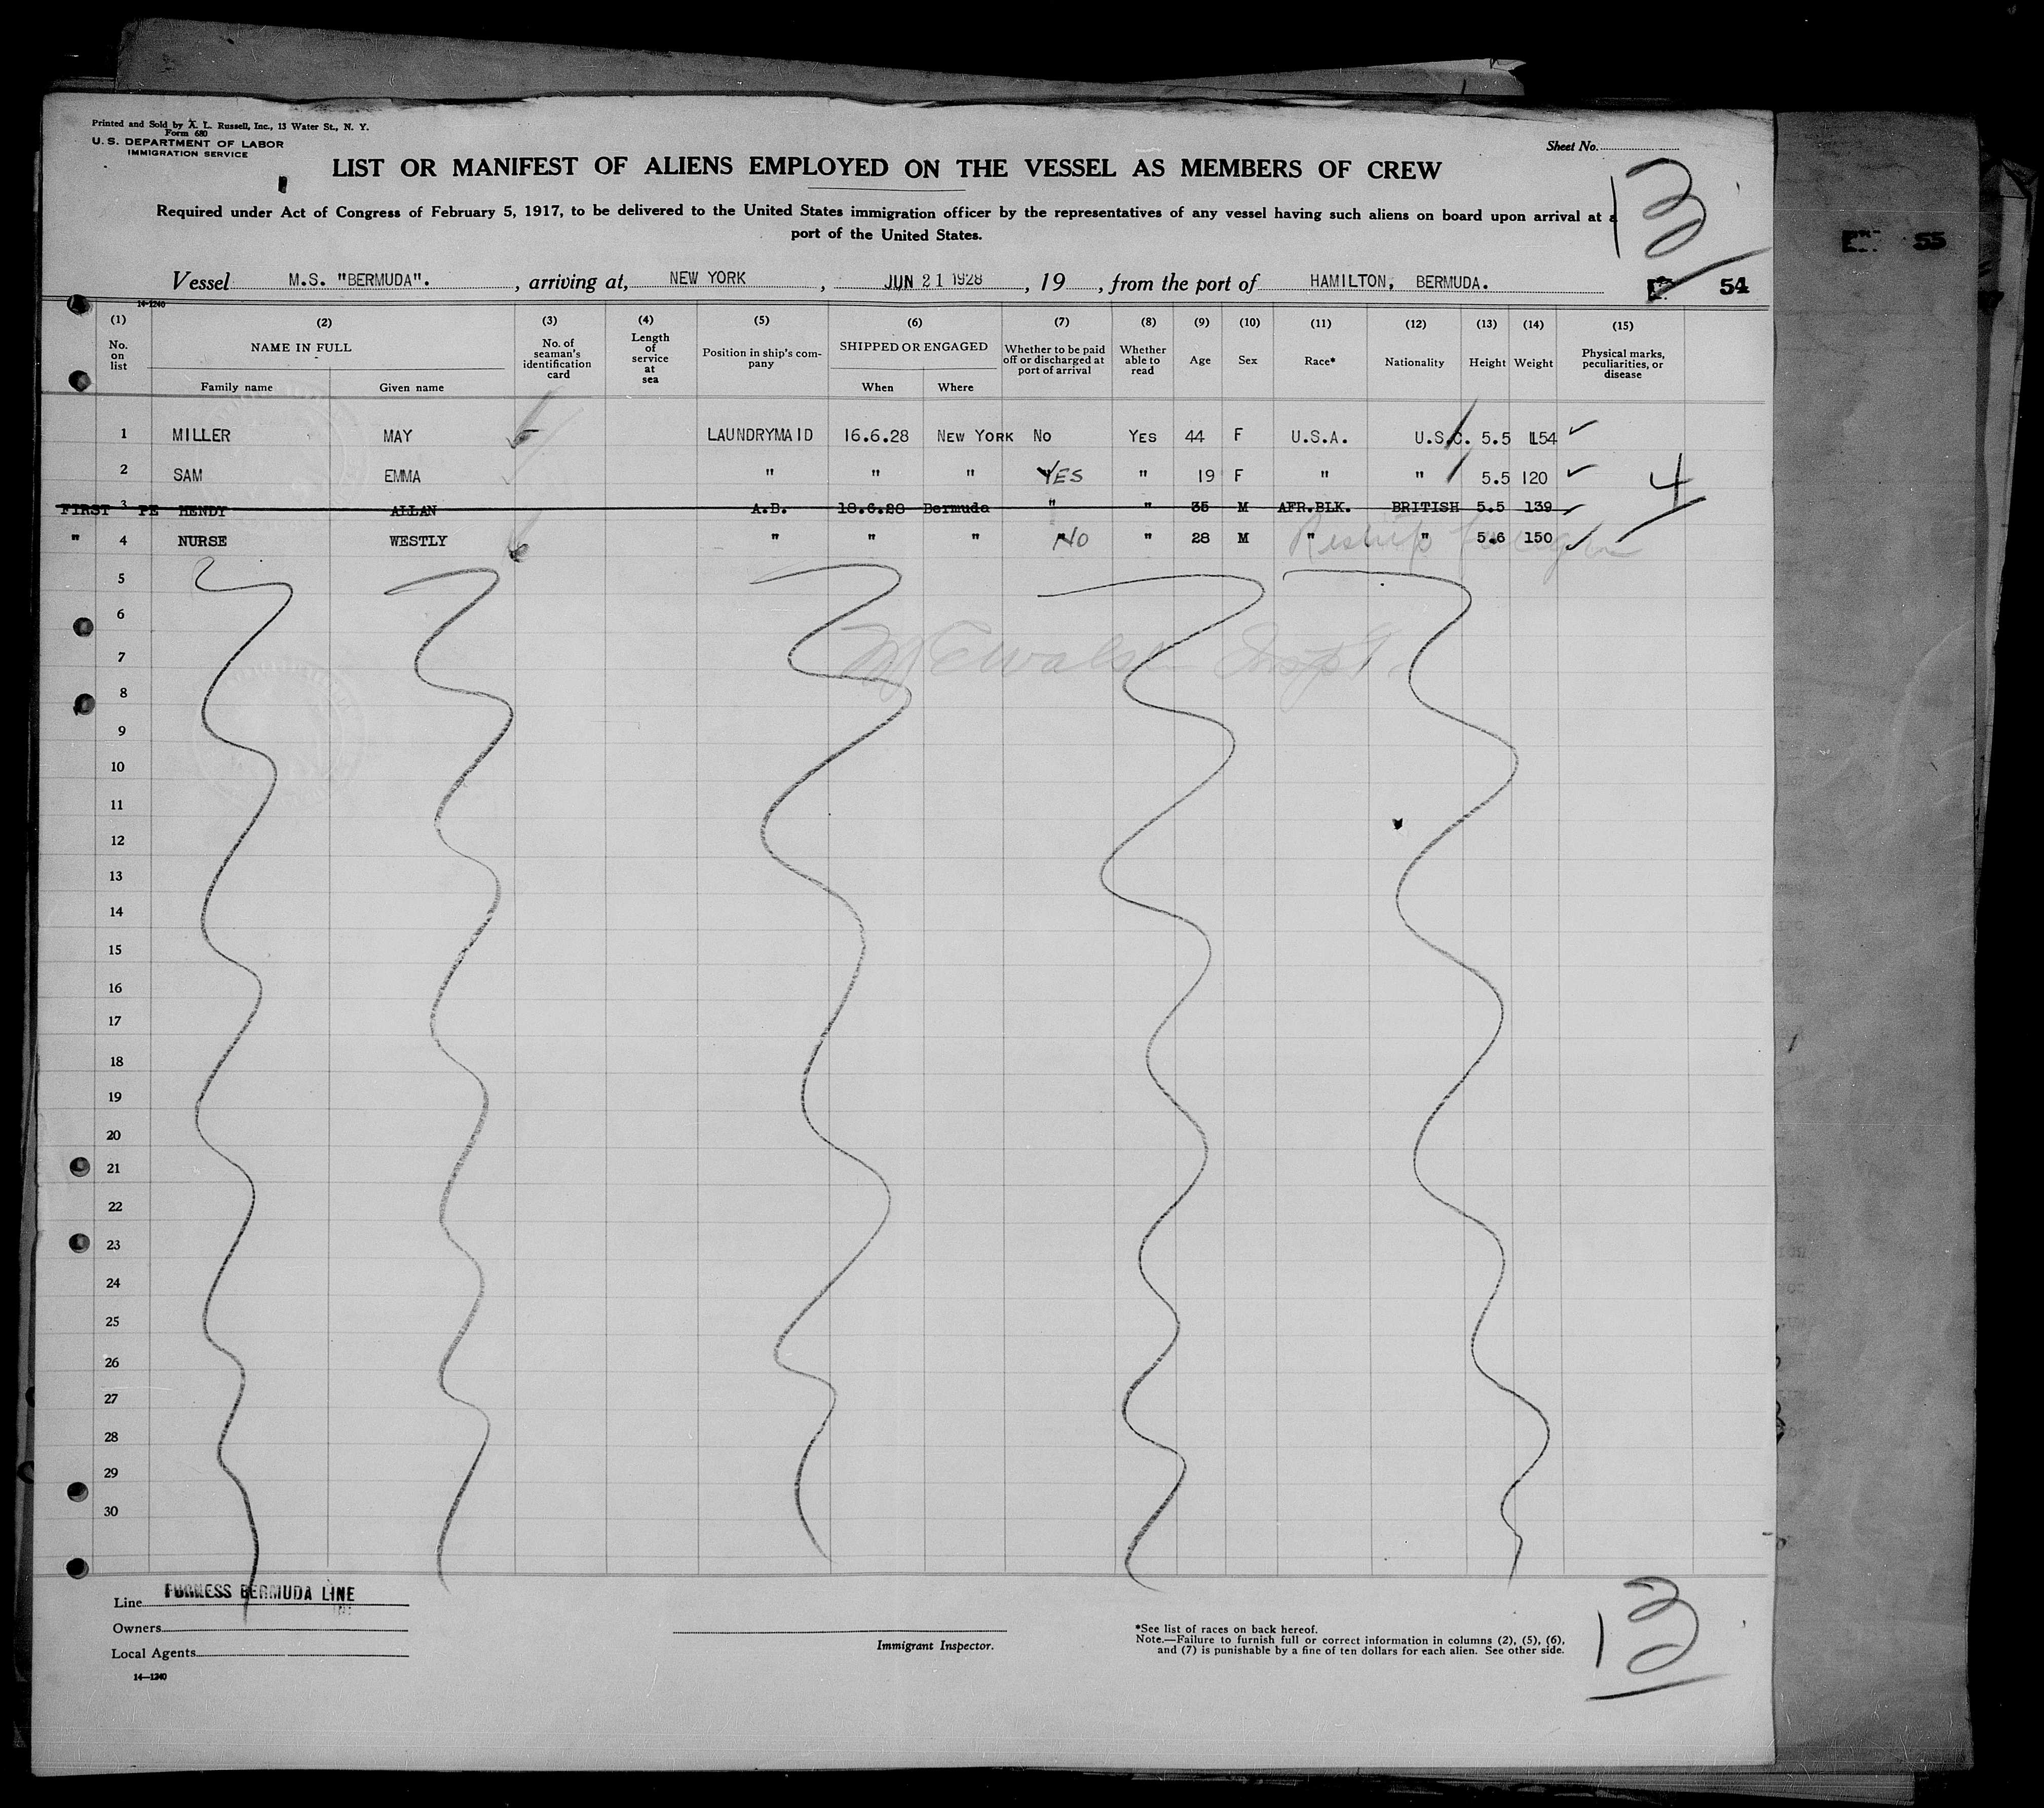 Printed and Sold by A. L. Russell, Inc., 13 Water St., N. Y.
Form 680
U. S. DEPARTMENT OF LABOR
IMMIGRATION SERVICE
Sheet No.
13
LIST OR MANIFEST OF ALIENS EMPLOYED ON THE VESSEL AS MEMBERS OF CREW
Required under Act of Congress of February 5, 1917, to be delivered to the United States immigration officer by the representatives of any vessel having such aliens on board upon arrival at a
port of the United States.
55
Vessel M.S. "BERMUDA". , arriving at, NEW YORK , JUN 21 1928 , 19 , from the port of HAMILTON, BERMUDA. 54
14-1240
(1) (2) (3) (4) (5) (6) (7) (8) (9) (10) (11) (12) (13) (14) (15)
No. on list NAME IN FULL No. of seaman's identification card Length of service at sea Position in ship's company SHIPPED OR ENGAGED Whether to be paid off or discharged at port of arrival Whether able to read Age Sex Race* Nationality Height Weight Physical marks, peculiarities, or disease
Family name Given name When Where
1 MILLER MAY LAUNDRYMAID 16.6.28 NEW YORK NO YES 44 F U.S.A. U.S.C. 5.5 154
2 SAM EMMA " " " YES " 19 F " " 5.5 120
4
FIRST PE 3 HENDY ALLAN A.B. 18.6.28 Bermuda " " 35 M AFR.BLK. BRITISH 5.5 139
" 4 NURSE WESTLY " " " NO " 28 M " " 5.6 150
Reship foreign
5
6
7
8
9
10
11
12
13
14
15
16
17
18
19
20
21
22
23
24
25
26
27
28
29
30
Line FURNESS BERMUDA LINE
Owners
Local Agents
14—1240
Immigrant Inspector.
*See list of races on back hereof.
Note.—Failure to furnish full or correct information in columns (2), (5), (6),
and (7) is punishable by a fine of ten dollars for each alien. See other side.
13